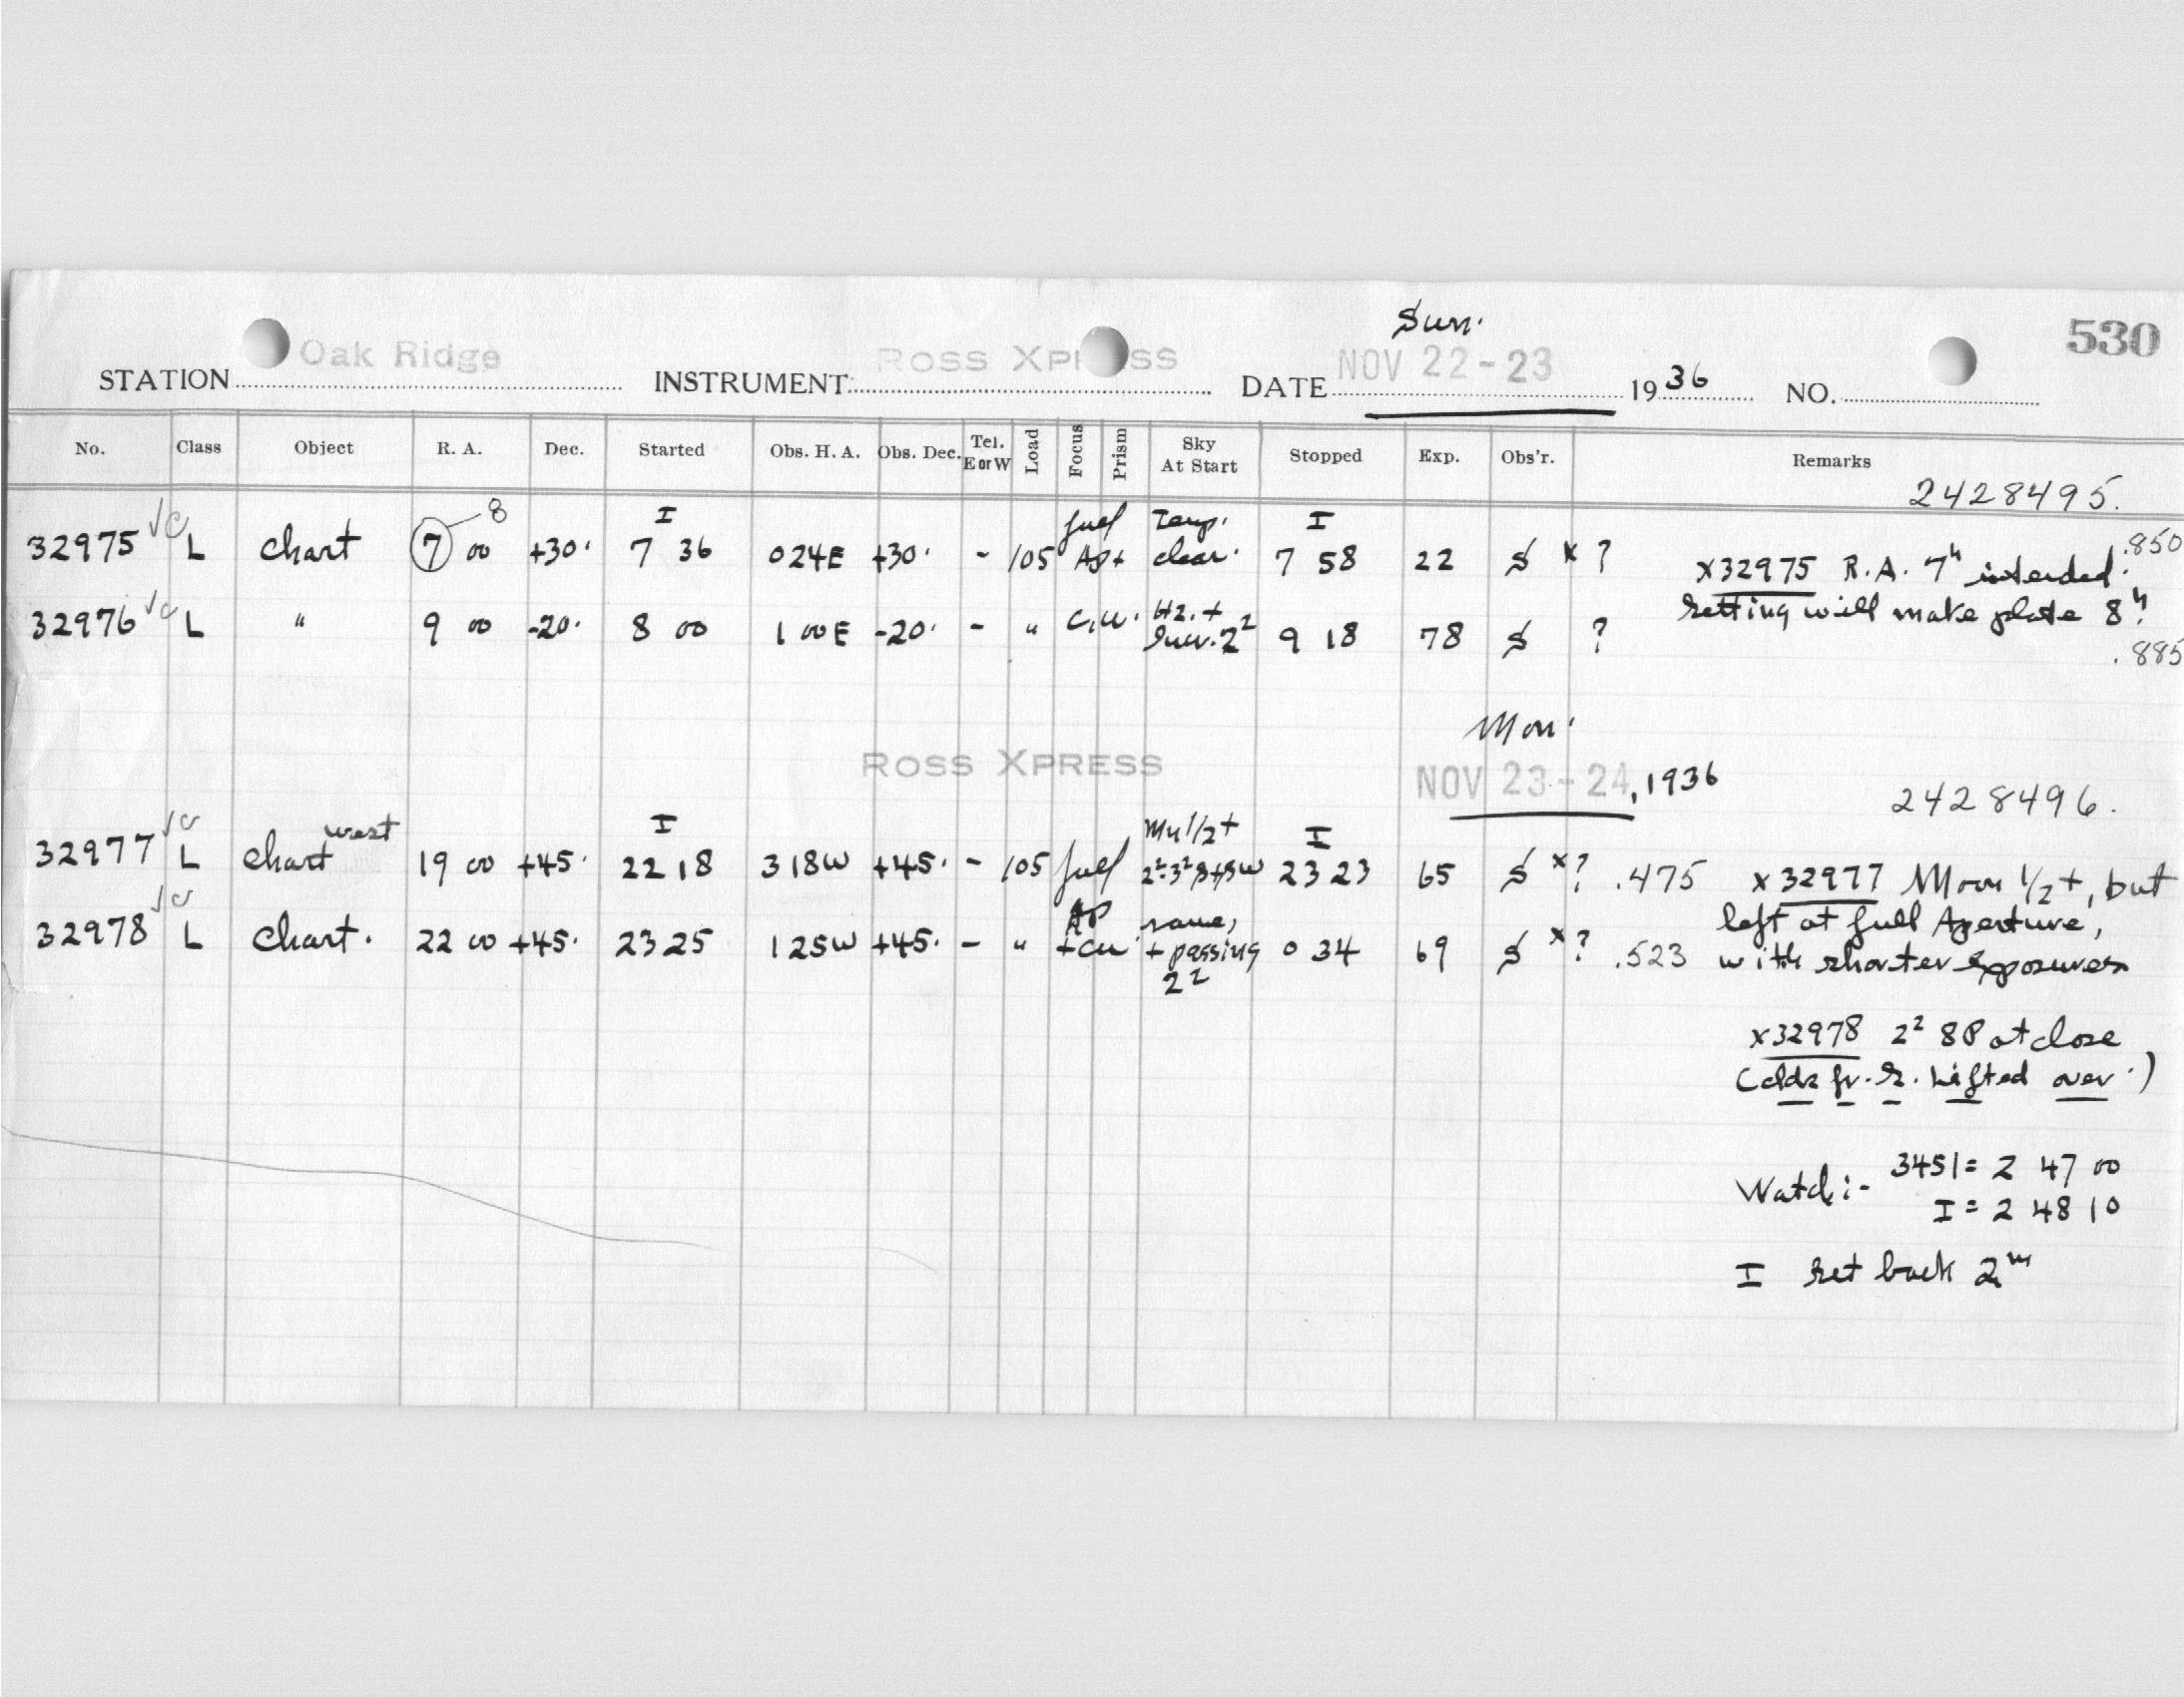 Sun.
530
STATION Oak Ridge INSTRUMENT: ROSS XPRESS DATE NOV 22-23 1936 NO.
No. Class Object R. A. Dec. Started Obs. H. A. Obs. Dec. Tel. E or W Load Focus Prism Sky At Start Stopped Exp. Obs'r. Remarks
2428495.
8
I full Temp. I
32975 √c L chart 7 00 +30. 7 36 024E +30. - 105 Ap+ clear. 7 58 22 S x ? .850
x32975 R.A. 7h intended.
setting will make plate 8h.
32976 √c L " 9 00 -20. 8 00 1 00E -20. - " C.W. Hz.+ 2² 9 18 78 S ? .885
Mon.
ROSS XPRESS NOV 23-24, 1936
2428496.
I I
32977 √c L chart west 19 00 +45. 22 18 318W +45. - 105 full 23 23 65 S x? .475
x32977 Moon 1/2+, but
left at full Aperture,
with shorter exposures
32978 √c L chart. 22 00 +45. 23 25 125W +45. - " Ap +CW same, + passing 2² 0 34 69 S x? .523
x32978 2² 8P at close
(clds fr. S. Lifted over.)
Watch:- 3451 = 2 47 00
I = 2 48 10
I set back 2m